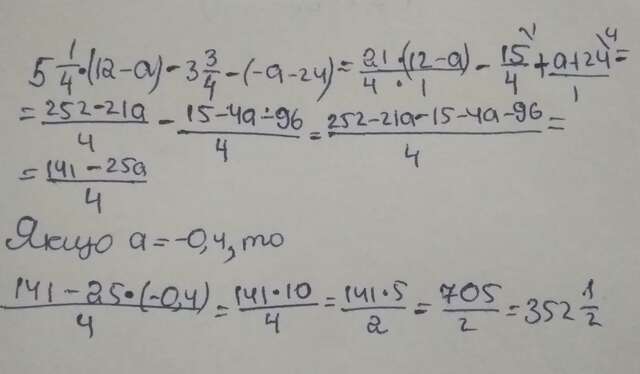 5 1/4 · (12 - a) - 3 3/4 - (-a - 24) = 21 · (12 - a)/4 · 1 - 15/4 + a + 24/1 =
= 252 - 21a/4 - 15 - 4a - 96/4 = 252 - 21a - 15 - 4a - 96/4 =
= 141 - 25a/4
Якщо a = -0,4, то
141 - 25 · (-0,4)/4 = 141 · 10/4 = 141 · 5/2 = 705/2 = 352 1/2